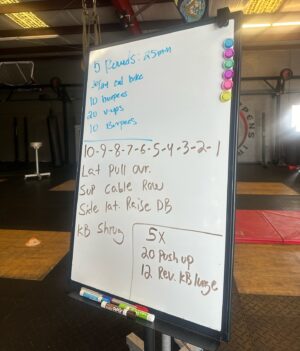 5 Rounds - 25min
20/14 cal bike
10 burpees
20 v-ups
10 Burpees
10-9-8-7-6-5-4-3-2-1
Lat Pull over
Sup Cable Row
Side lat. Raise DB
KB Shrug
5x
20 Push up
12 Rev. KB lunge